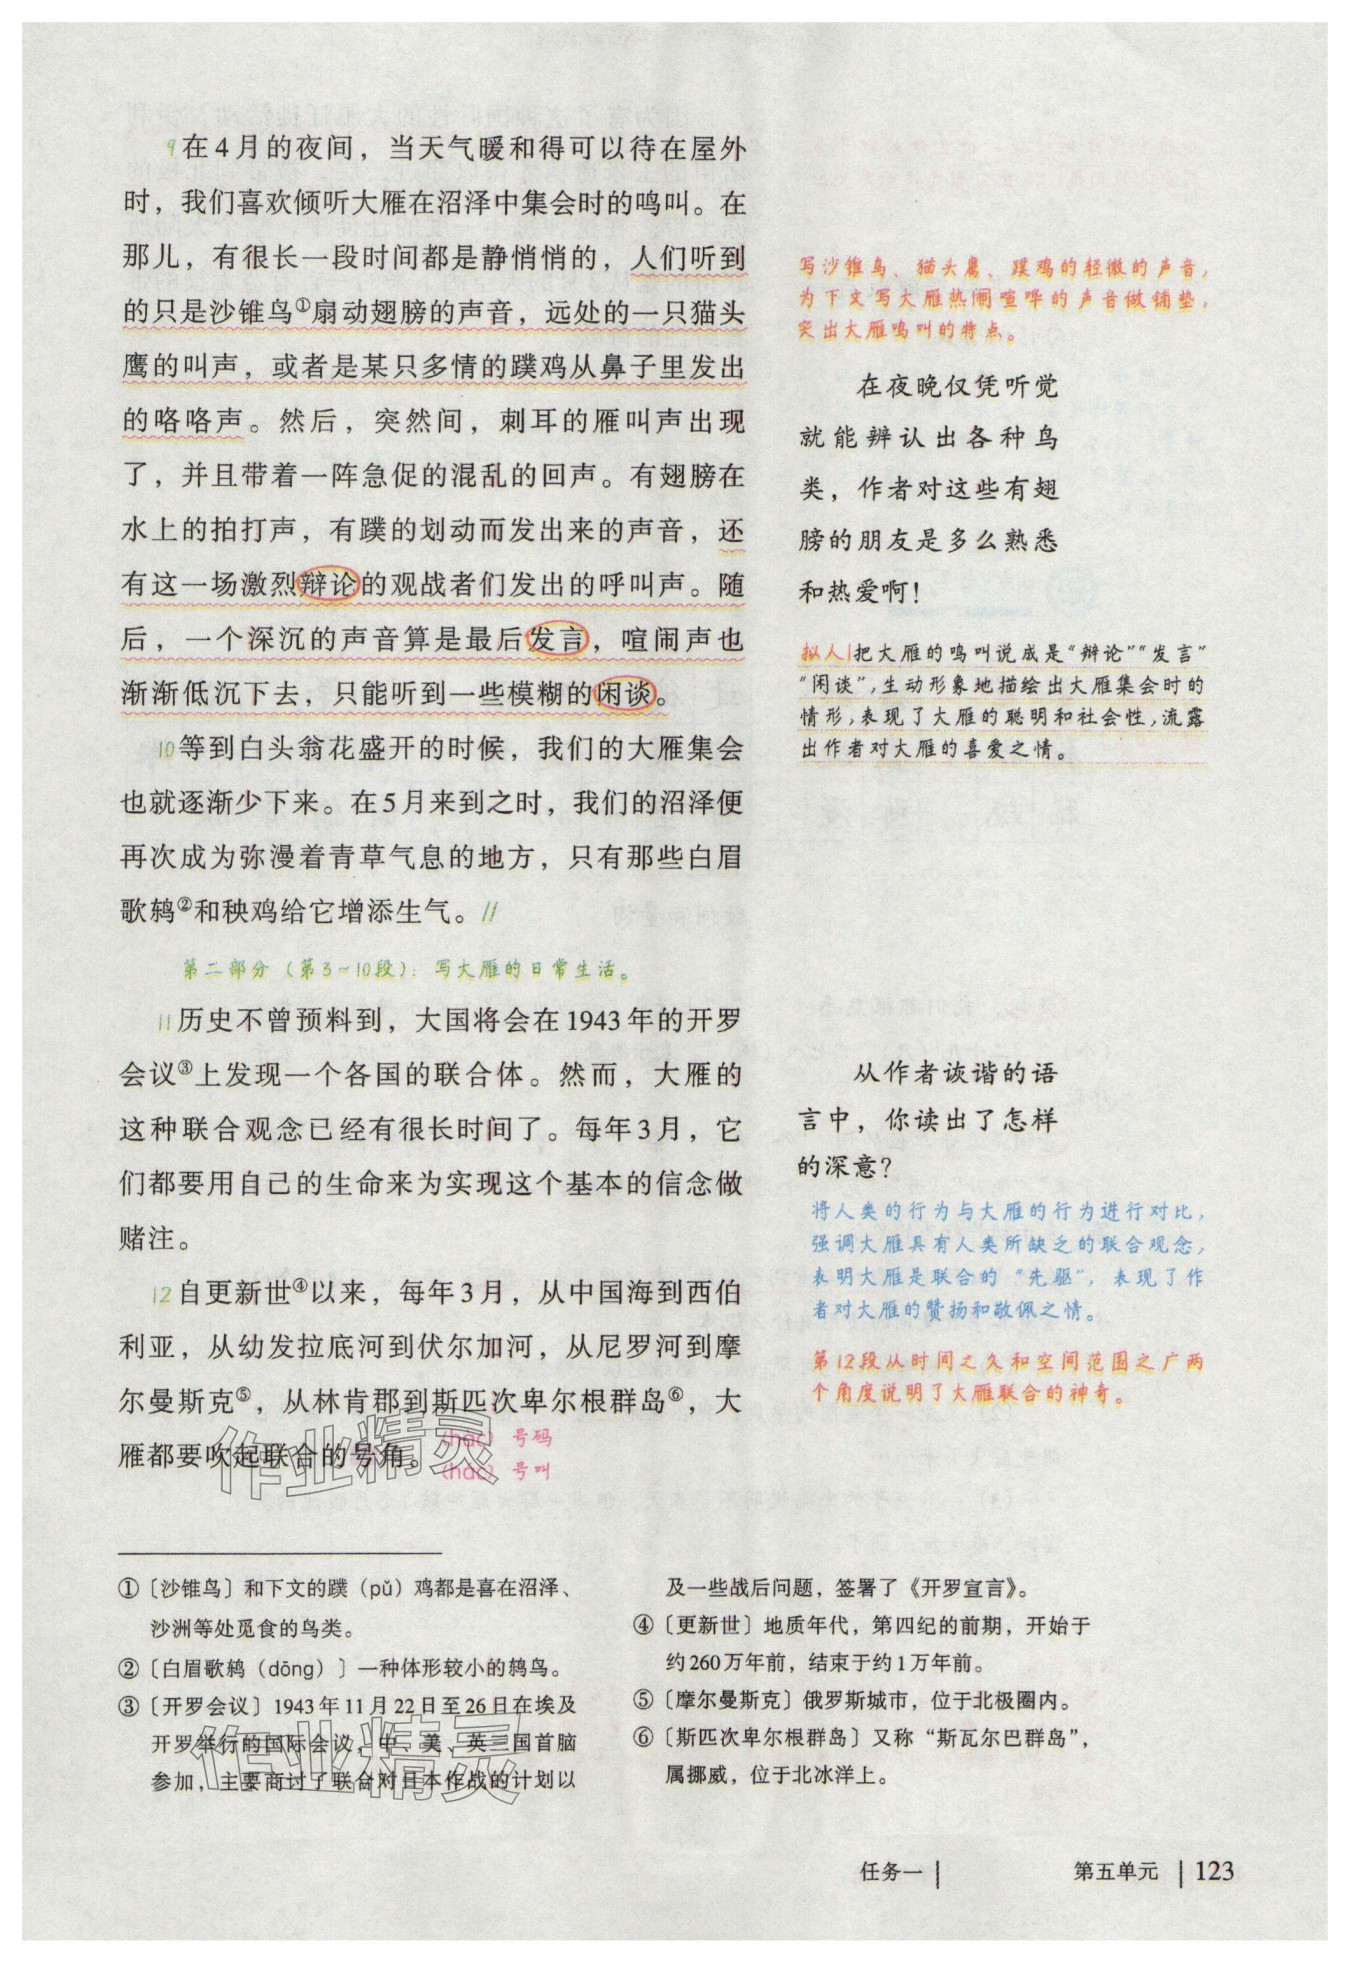 9在4月的夜间，当天气暖和得可以待在屋外
时，我们喜欢倾听大雁在沼泽中集会时的鸣叫。在
那儿，有很长一段时间都是静悄悄的，人们听到
的只是沙锥鸟①扇动翅膀的声音，远处的一只猫头
鹰的叫声，或者是某只多情的蹼鸡从鼻子里发出
的咯咯声。然后，突然间，刺耳的雁叫声出现
了，并且带着一阵急促的混乱的回声。有翅膀在
水上的拍打声，有蹼的划动而发出来的声音，还
有这一场激烈辩论的观战者们发出的呼叫声。随
后，一个深沉的声音算是最后发言，喧闹声也
渐渐低沉下去，只能听到一些模糊的闲谈。
10等到白头翁花盛开的时候，我们的大雁集会
也就逐渐少下来。在5月来到之时，我们的沼泽便
再次成为弥漫着青草气息的地方，只有那些白眉
歌鸫②和秧鸡给它增添生气。//
第二部分（第3~10段）：写大雁的日常生活。
11历史不曾预料到，大国将会在1943年的开罗
会议③上发现一个各国的联合体。然而，大雁的
这种联合观念已经有很长时间了。每年3月，它
们都要用自己的生命来为实现这个基本的信念做
赌注。
12自更新世④以来，每年3月，从中国海到西伯
利亚，从幼发拉底河到伏尔加河，从尼罗河到摩
尔曼斯克⑤，从林肯郡到斯匹次卑尔根群岛⑥，大
雁都要吹起联合的号角。
(hào) 号码
(háo) 号叫
写沙锥鸟、猫头鹰、蹼鸡的轻微的声音，
为下文写大雁热闹喧哗的声音做铺垫，
突出大雁鸣叫的特点。
在夜晚仅凭听觉
就能辨认出各种鸟
类，作者对这些有翅
膀的朋友是多么熟悉
和热爱啊！
拟人|把大雁的鸣叫说成是“辩论”“发言”
“闲谈”，生动形象地描绘出大雁集会时的
情形，表现了大雁的聪明和社会性，流露
出作者对大雁的喜爱之情。
从作者诙谐的语
言中，你读出了怎样
的深意？
将人类的行为与大雁的行为进行对比，
强调大雁具有人类所缺乏的联合观念，
表明大雁是联合的“先驱”，表现了作
者对大雁的赞扬和敬佩之情。
第12段从时间之久和空间范围之广两
个角度说明了大雁联合的神奇。
作业精灵
①〔沙锥鸟〕和下文的蹼（pǔ）鸡都是喜在沼泽、
沙洲等处觅食的鸟类。
②〔白眉歌鸫（dōng）〕一种体形较小的鸫鸟。
③〔开罗会议〕1943年11月22日至26日在埃及
开罗举行的国际会议，中、美、英三国首脑
参加，主要商讨了联合对日本作战的计划以
及一些战后问题，签署了《开罗宣言》。
④〔更新世〕地质年代，第四纪的前期，开始于
约260万年前，结束于约1万年前。
⑤〔摩尔曼斯克〕俄罗斯城市，位于北极圈内。
⑥〔斯匹次卑尔根群岛〕又称“斯瓦尔巴群岛”，
属挪威，位于北冰洋上。
作业精灵
任务一 | 第五单元 | 123